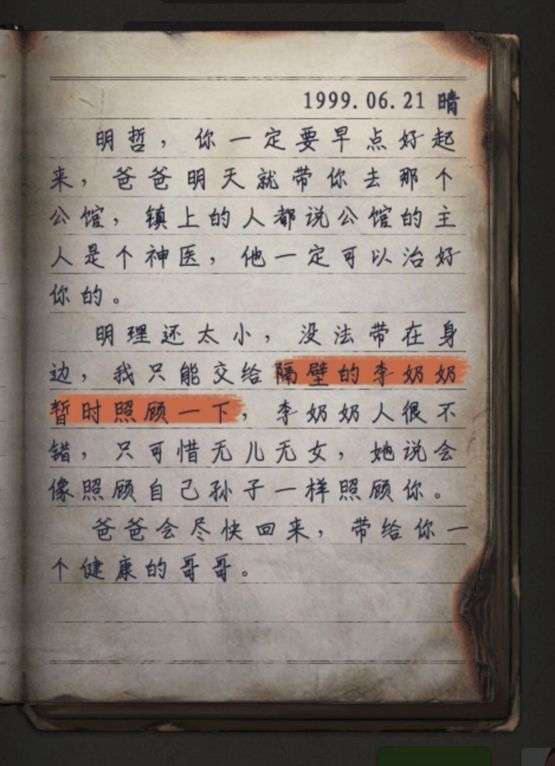 1999.06.21 晴
明哲，你一定要早点好起
来，爸爸明天就带你去那个
公馆，镇上的人都说公馆的主
人是个神医，他一定可以治好
你的。
明理还太小，没法带在身
边，我只能交给隔壁的李奶奶
暂时照顾一下，李奶奶人很不
错，只可惜无儿无女，她说会
像照顾自己孙子一样照顾你。
爸爸会尽快回来，带给你一
个健康的哥哥。